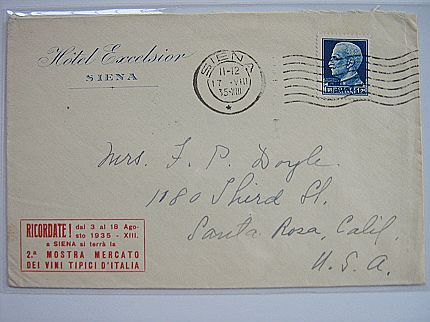 Hôtel Excelsior
SIENA
SIENA
11-12
17·VIII
35·XIII
Mrs. F. P. Doyle.
1180 Third St.
Santa Rosa, Calif.
U.S.A.
RICORDATE! dal 3 al 18 Ago-
sto 1935 - XIII.
a SIENA si terrà la
2.ª MOSTRA MERCATO
DEI VINI TIPICI D'ITALIA